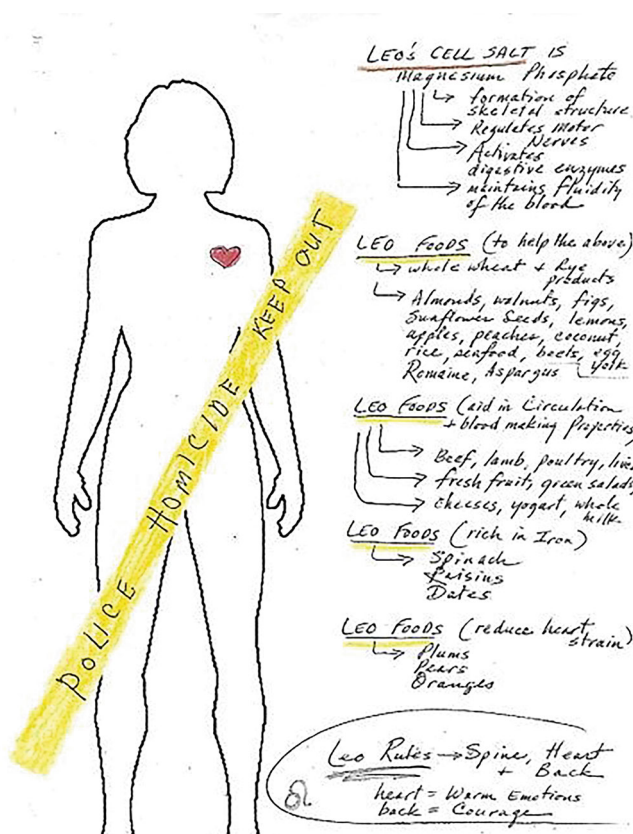 LEO's CELL SALT IS
Magnesium Phosphate
formation of
skeletal structure
Regulates Motor
Nerves
Activates
digestive enzymes
maintains fluidity
of the blood
LEO FOODS (to help the above)
whole wheat + Rye
products
Almonds, walnuts, figs,
Sunflower Seeds, lemons,
apples, peaches, coconut,
rice, seafood, beets, egg
yolk
Romaine, Asparagus
LEO FOODS (aid in Circulation
+ blood making Properties)
Beef, lamb, poultry, liver
fresh fruit, green salads
cheeses, yogart, whole
milk
LEO FOODS (rich in Iron)
Spinach
Raisins
Dates
LEO FOODS (reduce heart
strain)
Plums
Pears
Oranges
Leo Rules → Spine, Heart
+ Back
heart = Warm Emotions
back = Courage
♌
POLICE HOMICIDE KEEP OUT